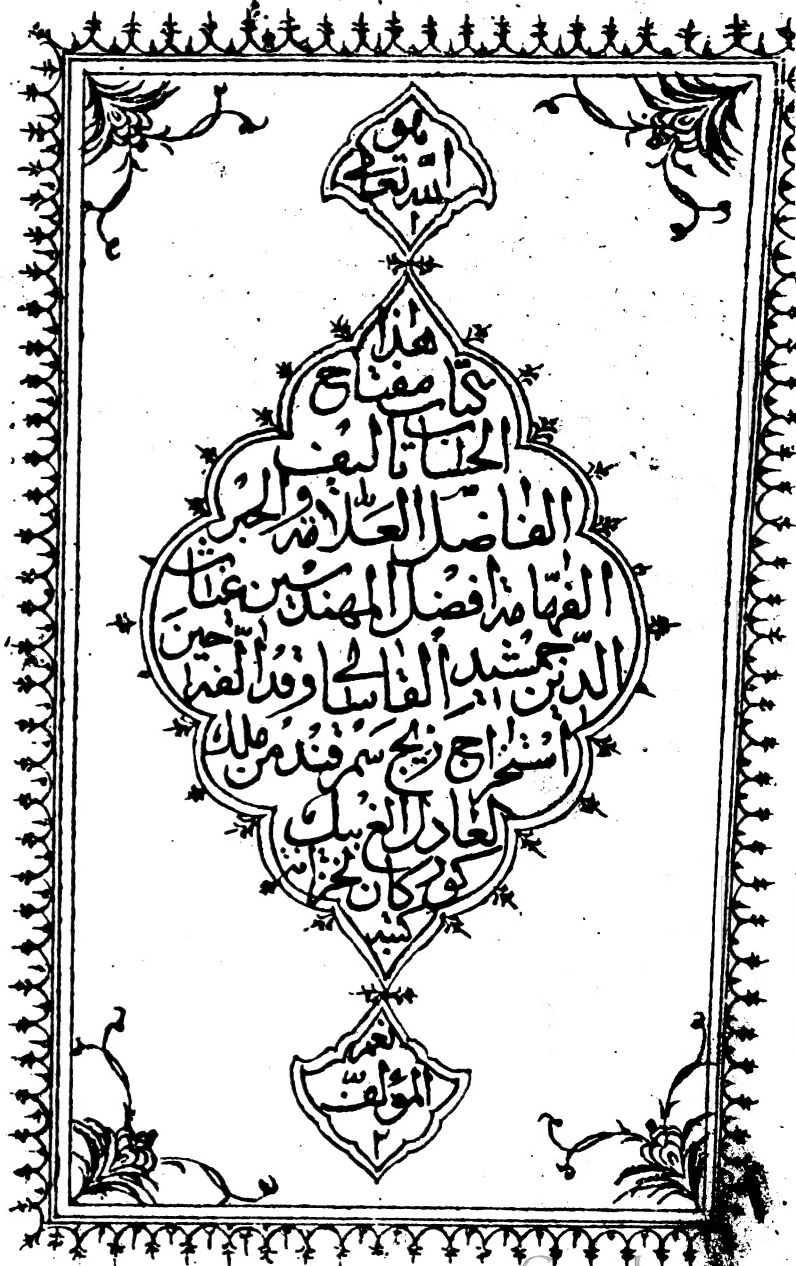 هو
الله تعالى
١
هذا
كتاب مفتاح
الحساب تأليف
الفاضل العلامة والحبر
الفهامة أفضل المهندسين غياث
الدين جمشيد القاسانى وقد ألفه حين
استخراج زيج سمرقند من ملك
لعادل الغ بيك
كوركان لخزانة
كتبه
المؤلف
٢